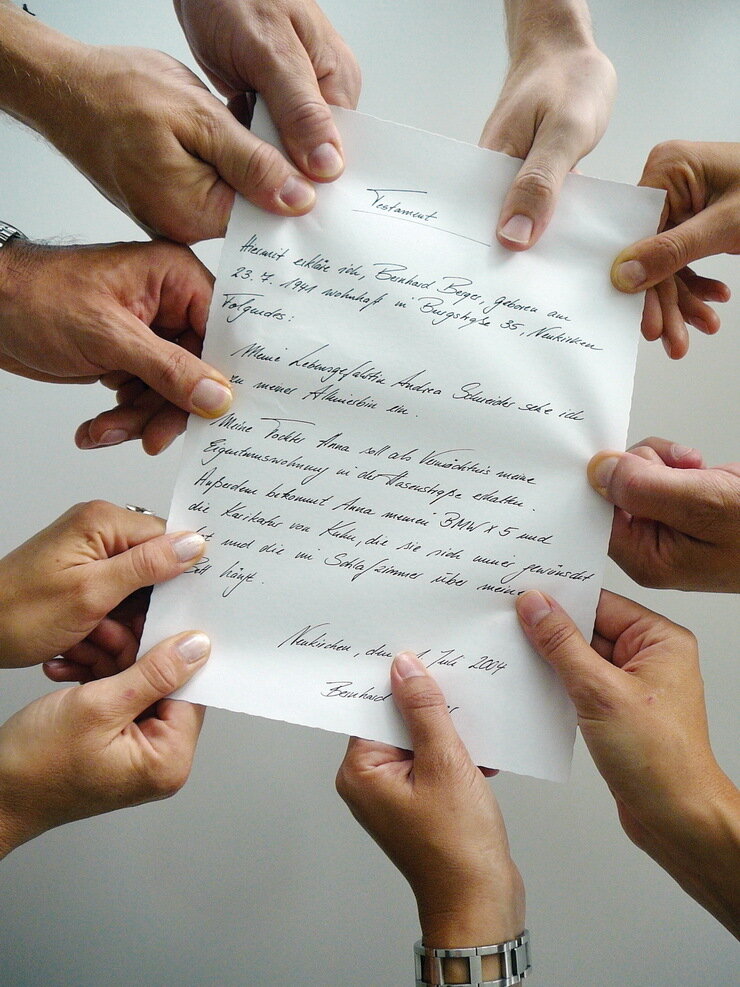 Testament
Hiermit erkläre ich, Bernhard Berger, geboren am
23. 7. 1941 wohnhaft in Burgstraße 35, Neukirchen
Folgendes:
Meine Lebensgefährtin Andrea Schneider setze ich
zu meiner Alleinerbin ein.
Meine Tochter Anna soll als Vermächtnis meine
Eigentumswohnung in der Hasenstraße erhalten.
Außerdem bekommt Anna meinen BMW X5 und
die Karikatur von Kuhn, die sie sich immer gewünscht
hat und die im Schlafzimmer über meinem
Bett hängt.
Neukirchen, den 1. Juli 2004
Bernhard